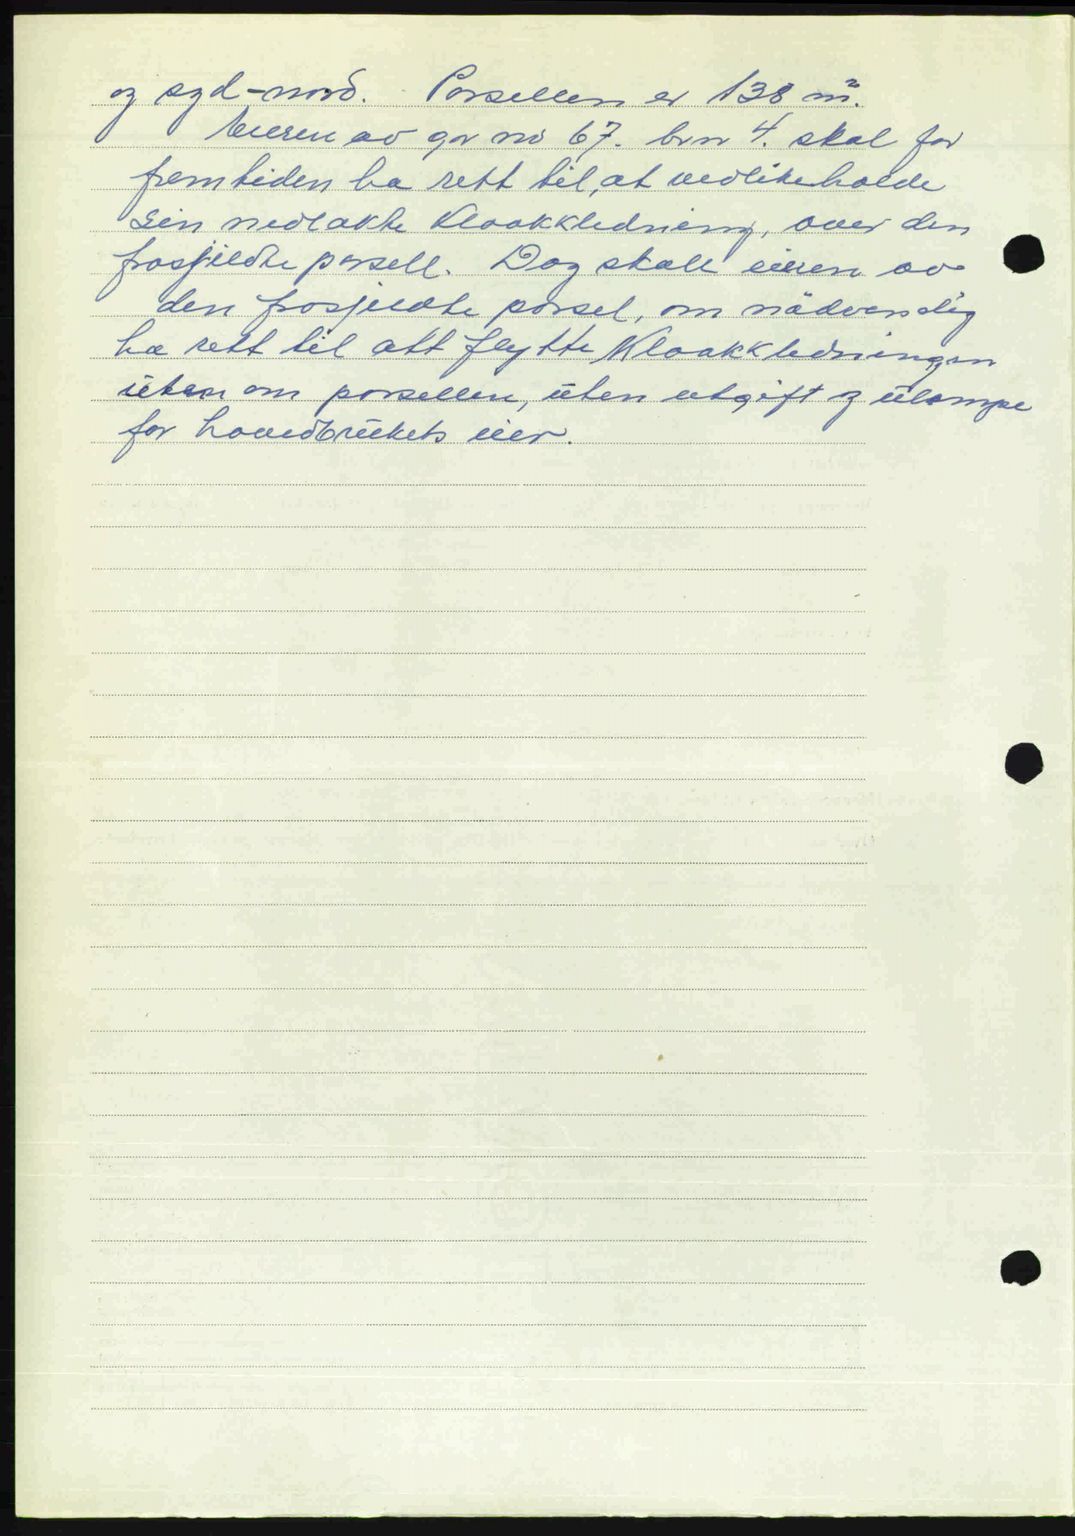 og syd-nord. Porsellen er 138 m².
Eieren av gr no 67. brn 4. skal for
fremtiden ha rett til, at vedlikeholde
sin nedlakte Kloakkledning, over den
frasjildte porsell. Dog skall eieren av
den frasjildte porsel, om nødvendig
ha rett til att flytte Kloakkledningen
uten om porsellen, uten utgift og ulempe
for hovedbrukets eier.